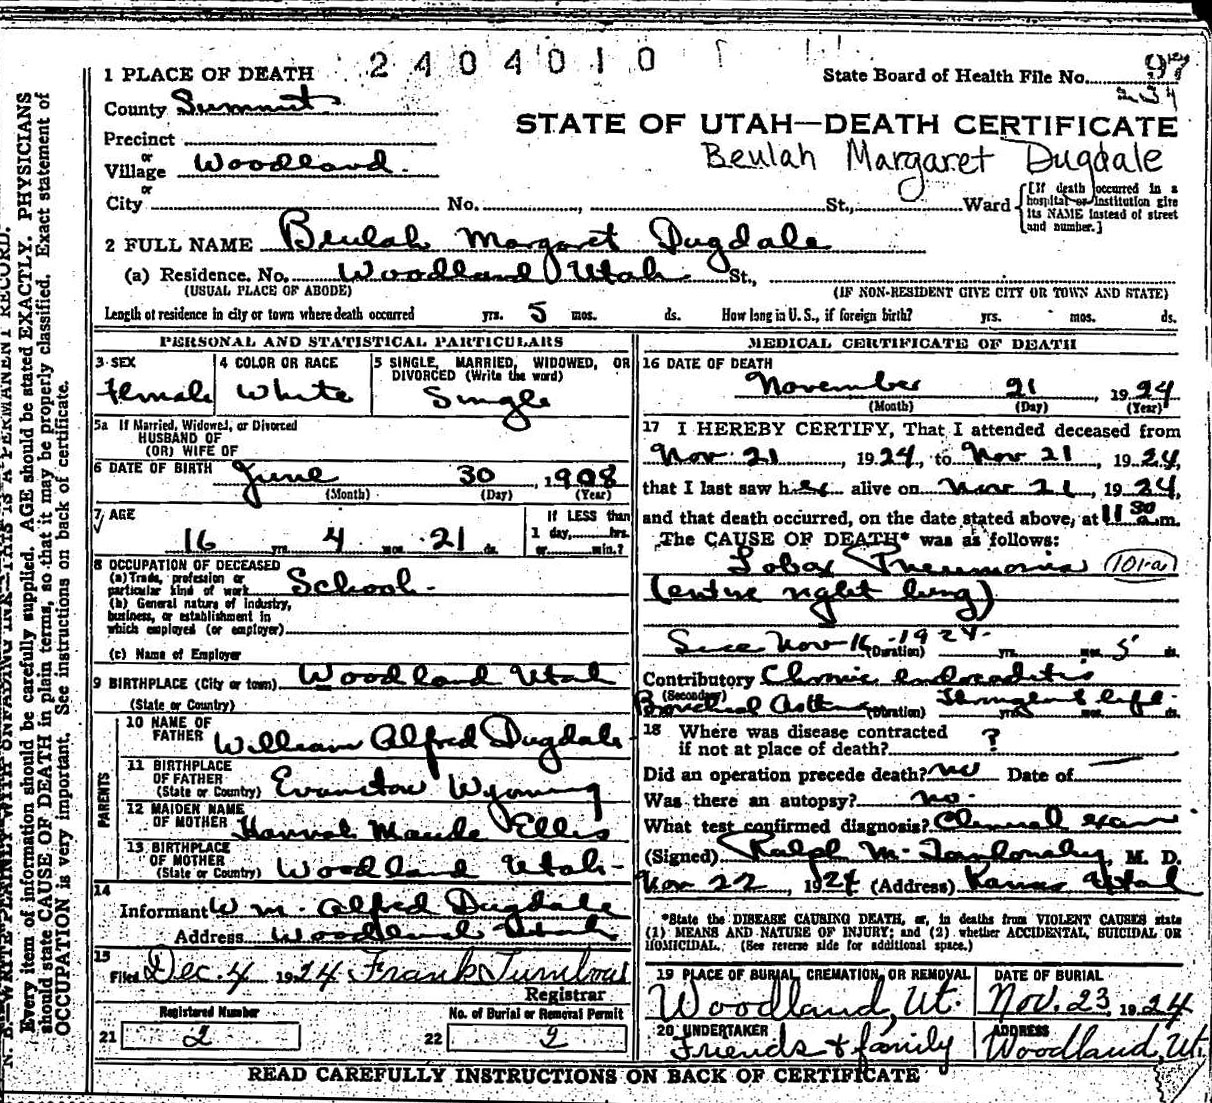 2404010
1 PLACE OF DEATH
State Board of Health File No. 97
234
County Summit
STATE OF UTAH—DEATH CERTIFICATE
Precinct
Beulah Margaret Dugdale
or
Village Woodland
or
City No. , St., Ward
[If death occurred in a hospital or institution give its NAME instead of street and number.]
2 FULL NAME Beulah Margaret Dugdale
(a) Residence. No. Woodland Utah St.,
(USUAL PLACE OF ABODE) (IF NON-RESIDENT GIVE CITY OR TOWN AND STATE)
Length of residence in city or town where death occurred yrs. 5 mos. ds. How long in U. S., if foreign birth? yrs. mos. ds.
PERSONAL AND STATISTICAL PARTICULARS
3 SEX 4 COLOR OR RACE 5 SINGLE, MARRIED, WIDOWED, OR DIVORCED (Write the word)
Female White Single
5a If Married, Widowed, or Divorced
HUSBAND OF
(OR) WIFE OF
6 DATE OF BIRTH June 30, 1908
(Month) (Day) (Year)
7 AGE If LESS than
16 yrs. 4 mos. 21 ds. 1 day, hrs.
or min.?
8 OCCUPATION OF DECEASED
(a) Trade, profession or
particular kind of work School
(b) General nature of industry,
business, or establishment in
which employed (or employer)
(c) Name of Employer
9 BIRTHPLACE (City or town) Woodland Utah
(State or Country)
PARENTS
10 NAME OF
FATHER William Alfred Dugdale
11 BIRTHPLACE
OF FATHER
(State or Country) Evanston Wyoming
12 MAIDEN NAME
OF MOTHER Hannah Maude Ellis
13 BIRTHPLACE
OF MOTHER
(State or Country) Woodland Utah
14
Informant Wm. Alfred Dugdale
Address Woodland Utah
15
Filed Dec. 4 1924 Frank
Registrar
Registered Number No. of Burial or Removal Permit
21 2 22 2
MEDICAL CERTIFICATE OF DEATH
16 DATE OF DEATH
November 21, 1924
(Month) (Day) (Year)
17 I HEREBY CERTIFY, That I attended deceased from
Nov. 21, 1924, to Nov 21, 1924,
that I last saw her alive on Nov 21, 1924,
and that death occurred, on the date stated above, at 11 30 a.m.
The CAUSE OF DEATH* was as follows:
Lobar Pneumonia 101-a
(entire right lung)
Since Nov 16-1924-
(Duration) yrs. mos. 5 ds.
Contributory Chronic endocarditis
(Secondary)
Bronchial Asthma (Duration) Throughout life yrs. mos. ds.
18 Where was disease contracted
if not at place of death? ?
Did an operation precede death? no Date of —
Was there an autopsy? no.
What test confirmed diagnosis? Clinical exam
(Signed) Ralph M. , M. D.
Nov 22, 1924 (Address) Kamas Utah
*State the DISEASE CAUSING DEATH, or, in deaths from VIOLENT CAUSES state
(1) MEANS AND NATURE OF INJURY; and (2) whether ACCIDENTAL, SUICIDAL OR
HOMICIDAL. (See reverse side for additional space.)
19 PLACE OF BURIAL, CREMATION, OR REMOVAL DATE OF BURIAL
Woodland, Ut. Nov. 23, 1924
20 UNDERTAKER ADDRESS
Friends & family Woodland, Ut.
READ CAREFULLY INSTRUCTIONS ON BACK OF CERTIFICATE
N. B.—WRITE PLAINLY WITH UNFADING INK—THIS IS A PERMANENT RECORD.
Every item of information should be carefully supplied. AGE should be stated EXACTLY. PHYSICIANS
should state CAUSE OF DEATH in plain terms, so that it may be properly classified. Exact statement of
OCCUPATION is very important. See instructions on back of certificate.